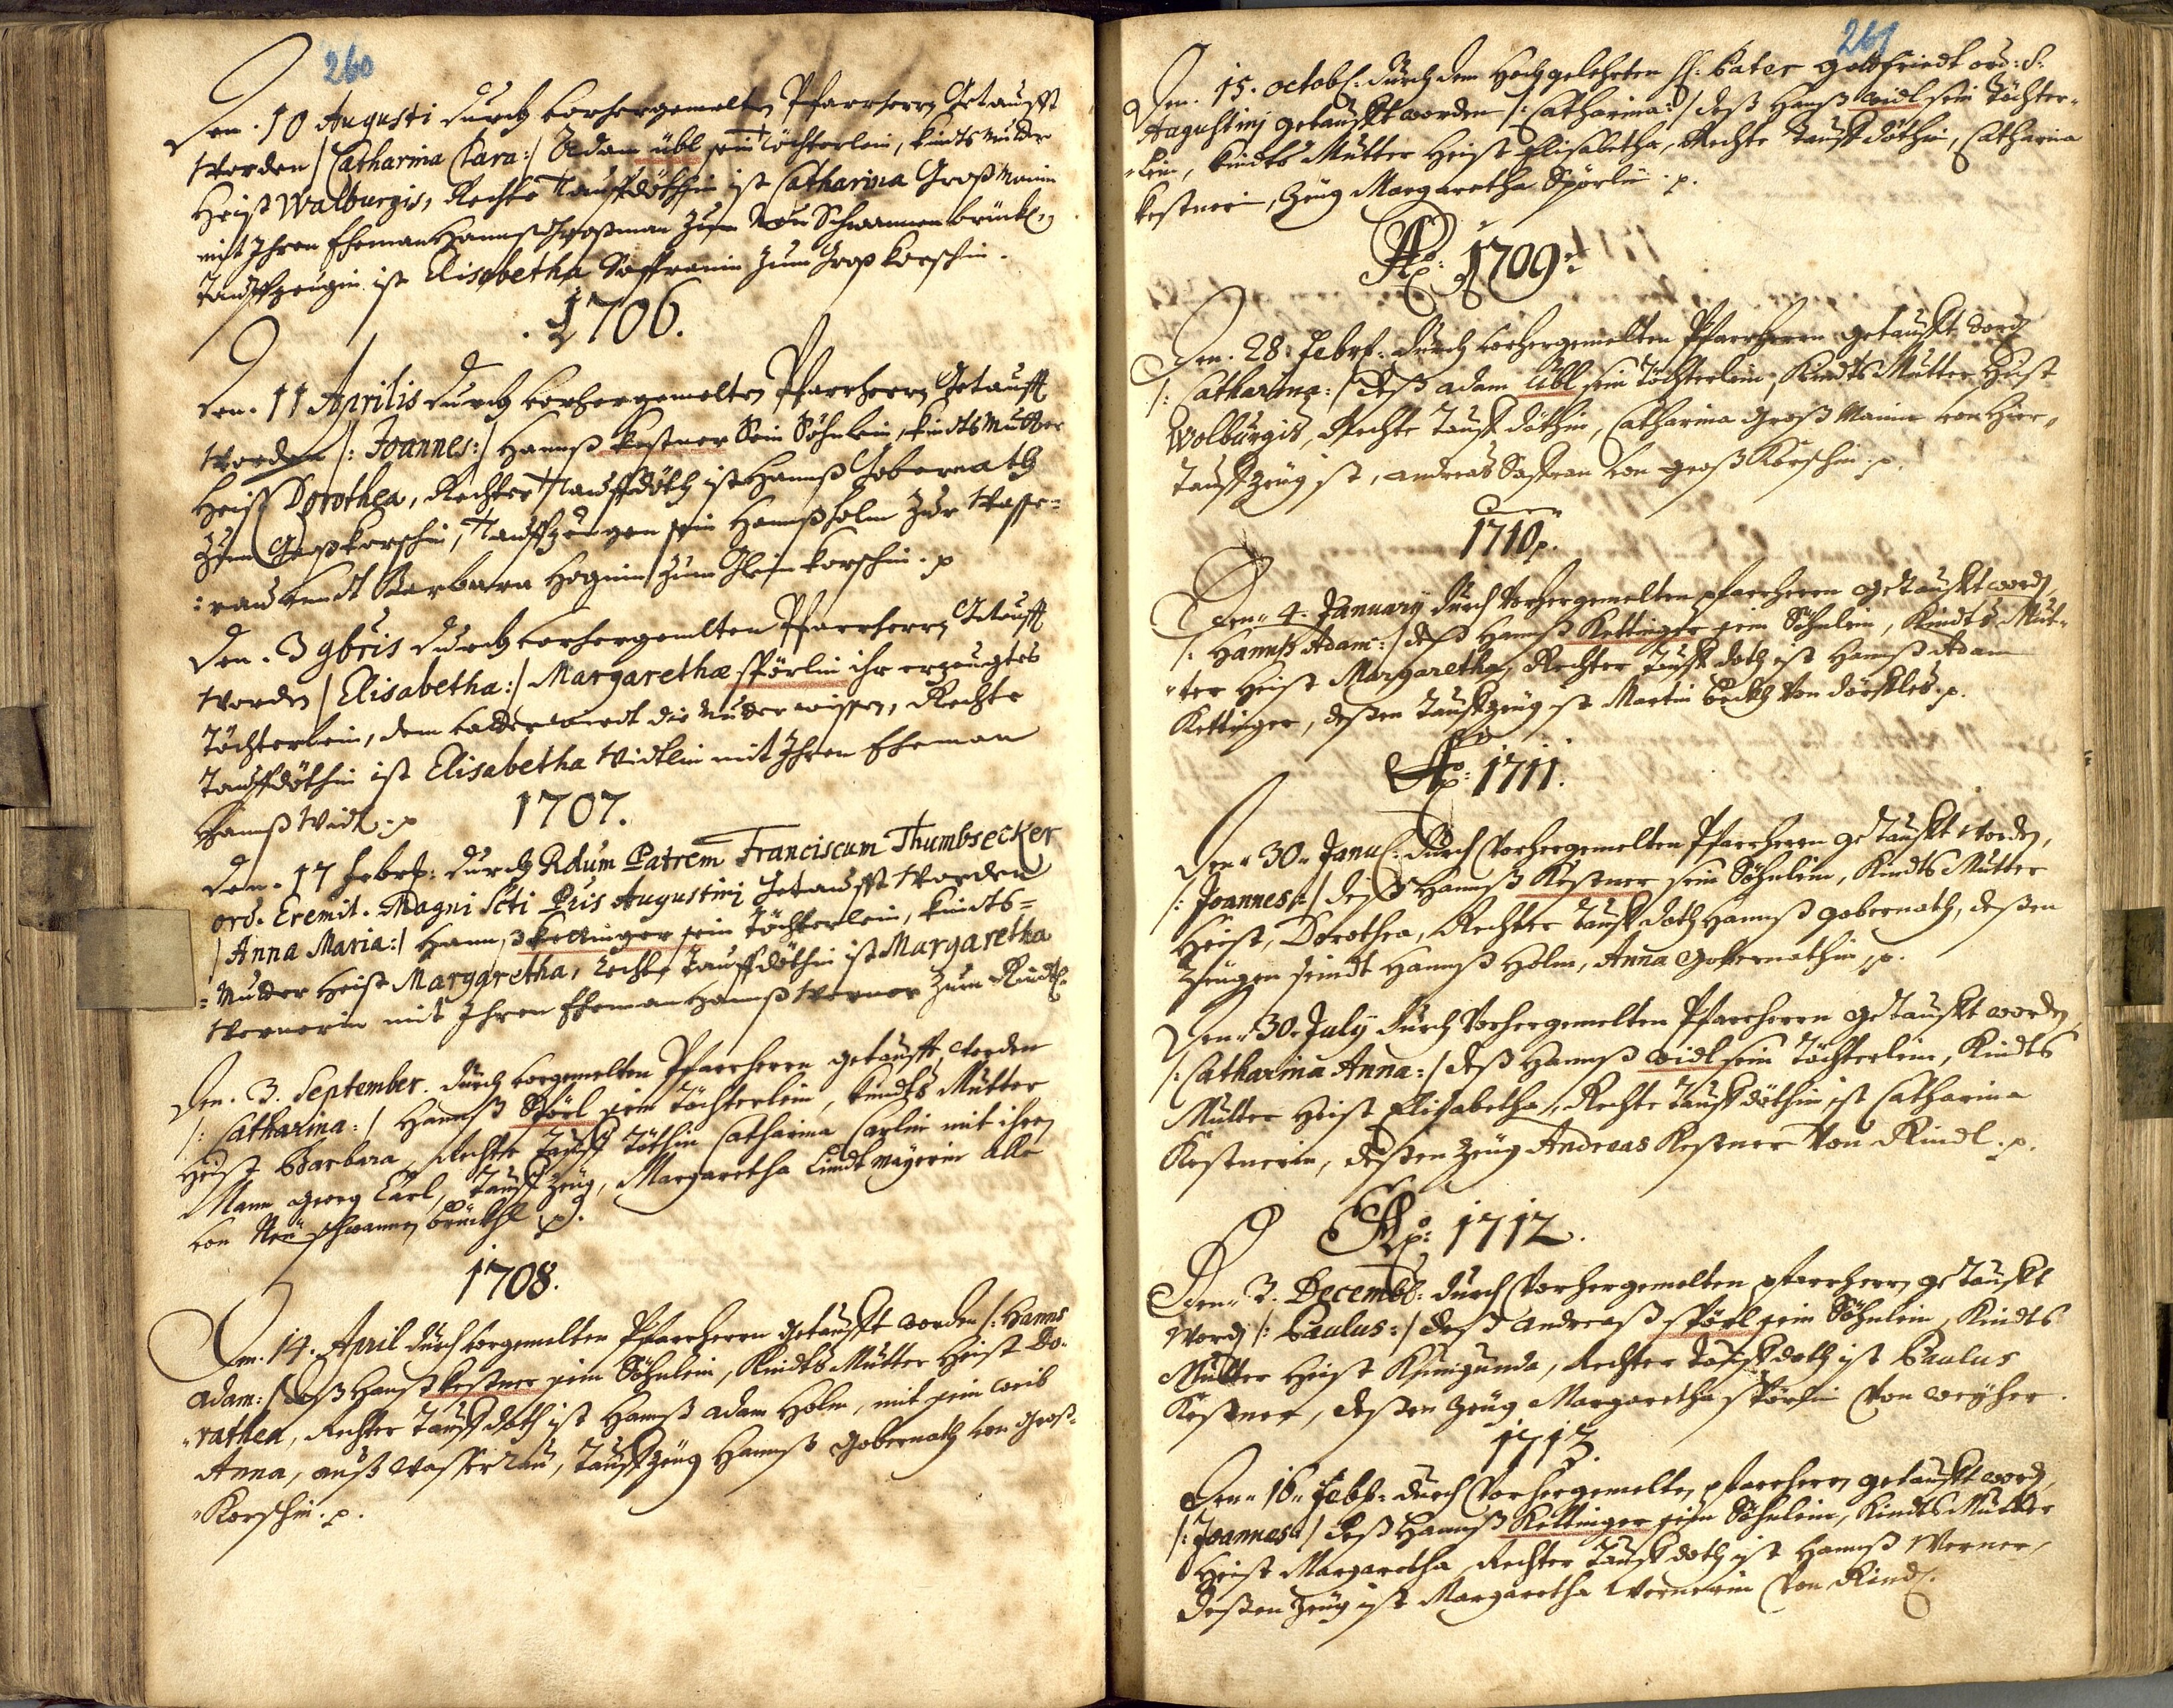 260
Den. 10 Augusti durch vorhergemelten Pfarrherrn Getaufft
worden /: Catharina Clara:/ Adam übl sein Töchterlein, kindts Mutter
heist Walburgis, Rechte Tauffdöthin ist Catharina Großmanin
mit Ihren Eheman Hannß Großman zum Neu Schwannenbrückl,
Tauffzeugin ist Elisabetha Saffranin zum Groß korschin.
1706.
Den. 11 Aprilis durch vorhergemelten Pfarrherrn Getaufft
worden /: Joannes:/ Hannß kestner Sein Söhnlein, kindts Mutter
heist Dorothea, Rechter Tauffdöth ist Hannß Gobernath
zum Großkorschin, Tauffzeugen sein Hannß holm zur Wasse=
:rau undt Barbara Hoginin zum Klein korschin. p
Den. 3 9bris durch vorhergemelten Pfarrherrn Getaufft
worden /: Elisabetha:/ Margarethæ spörlin ihr erzeugtes
Töchterlein, dem vatter wirdt die Mutter wissen, Rechte
Tauffdöthin ist Elisabetha Widlin mit Ihren Eheman
Hannß Widl. p
1707.
Den. 17 Febr: durch Rdum Patrem Franciscum Thumbsecker
ord. Eremit. Magni Scti Pris Augustini Getaufft worden
/: Anna Maria:/ Hannß kettinger sein Töchterlein, kindts=
=Mutter heist Margaretha, rechte Tauffdöthin ist Margaretha
Wernerin mit Ihren Eheman Hannß Werner zum Rindl.
Den. 3. September. durch vorgemelten Pfarrherrn getaufft worden
/: Catharina:/ Hannß Spörl sein Töchterlein, kindts Mutter
heist Barbara, Rechte Tauff Döthin Catharina Carlin mit ihren
Mann Georg Carl, Tauff Zeug, Margaretha Lindtmayerin Alle
von Neu schwannenbrückhl. p.
1708.
Den. 14. April durch vorgemelten Pfarrherrn getaufft worden /: Hannß
Adam:/ deß Hannß kestner sein Söhnlein, Kindts Mutter heist Do=
=rathea, Rechter Tauff doth ist Hannß Adam Holm, mit sein weib
Anna, auß Wasserrau, Tauffzeug Hannß Gobernath von Groß=
=Korschin. p.
261
Den. 15. octob: durch dem Hochgelehrten H: Pater Gottfriedt ord: S:
Augustinj getaufft worden /: Catharina:/ deß Hannß widl sein Töchter=
=lein, kindts Mutter heist Elisabetha, Rechte Tauff döthin, Catharina
kestnerin, Zeug Margaretha Spörlin. p.
Ao: 1709.
Den. 28. Febr: durch vorhergemelten Pfarrherrn getaufft word
/: Catharina:/ deß adam übl sein Töchterlein, Kindts Mutter Heist
Wolburgis, Rechte Tauff döthin, Catharina Groß Manin von hier,
Tauff Zeug ist, andreas Saffran von groß Korschin. p.
1710.
Den 4. January durch vorhergemelten pfarrherrn getaufft word,
/: Hannß Adam:/ deß Hannß Kettinger sein Söhnlein, Kindts Mut=
=ter heist Margaretha, Rechter Tauff doth ist Hannß Adam
Kettinger, deßen Tauffzeug ist Martin beckh von dörfles. p.
Ao: 1711.
Den 30. Janu: durch vorhergemelten Pfarrherrn getaufft worden,
/: Joannes:/ deß Hannß Kestner sein Söhnlein, Kindts Mutter
Heist, Dorothea, Rechter Tauff doth Hannß gobernath, deßen
Zeugen seindt Hannß Holm, Anna Gobernathin. p.
Den 30. July durch vorhergemelten Pfarrherrn getaufft worden,
/: Catharina Anna:/ deß Hannß widl sein Töchterlein, Kindts
Mutter heist Elisabetha, Rechte Tauff döthin ist Catharina
Kestnerin, deßen Zeug Andreas Kestner von Rindl. p.
Ao: 1712.
Den 3. Decemb: durch vorhergemelten pfarrherrn getaufft
word /: Paulus:/ deß Andreaß spörl sein Söhnlein, Kindts
Mutter heist Kunigunda, Rechter Tauff doth ist Paulus
Kestner, deßen Zeug Margaretha spörlin von weyher.
1713.
Den 16. Feb: durch vorhergemelten pfarrherrn getaufft word,
/: Joannes:/ deß Hannß Kettinger sein Söhnlein, Kindts Mutter
Heist Margaretha, Rechter Tauff doth ist Hannß Werner,
deßen Zeug ist Margaretha Wernerin von Rindl.